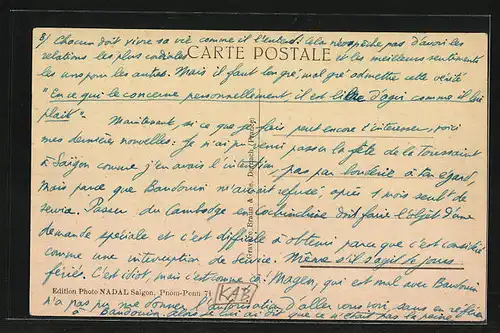 3/ Chacun doit vivre sa vie comme il l'entend. Cela n'empêche pas d'avoir les
relations les plus cordiales et les meilleurs sentiments
CARTE POSTALE
les uns pour les autres. Mais il faut bon gré, mal gré admettre cette vérité
"En ce qui le concerne personnellement, il est libre d'agir comme il lui
plaît".
Maintenant, si ce que je fais peut encore t'intéresser, voici
mes dernières nouvelles: Je n'ai pu venir passer la fête de la Toussaint
à Saïgon comme j'en avais l'intention, pas par bouderie à ton égard,
mais parce que Baudouin m'avait refusé, après 1 mois seul de
service. Passer du Cambodge en Cochinchine doit faire l'objet d'une
demande spéciale et c'est difficile à obtenir parce que c'est considéré
comme une interruption de service. Même s'il s'agit de jours
fériés. C'est idiot, mais c'est comme ça! qui est mal avec Baudouin
Edition Photo NADAL Saïgon, Pnom-Penh
KAB
n'a pas pu me donner l'autorisation d'aller vous voir sans en référer
à Baudouin. Alors je lui ai dit que ce n'était pas la peine!
Braun &